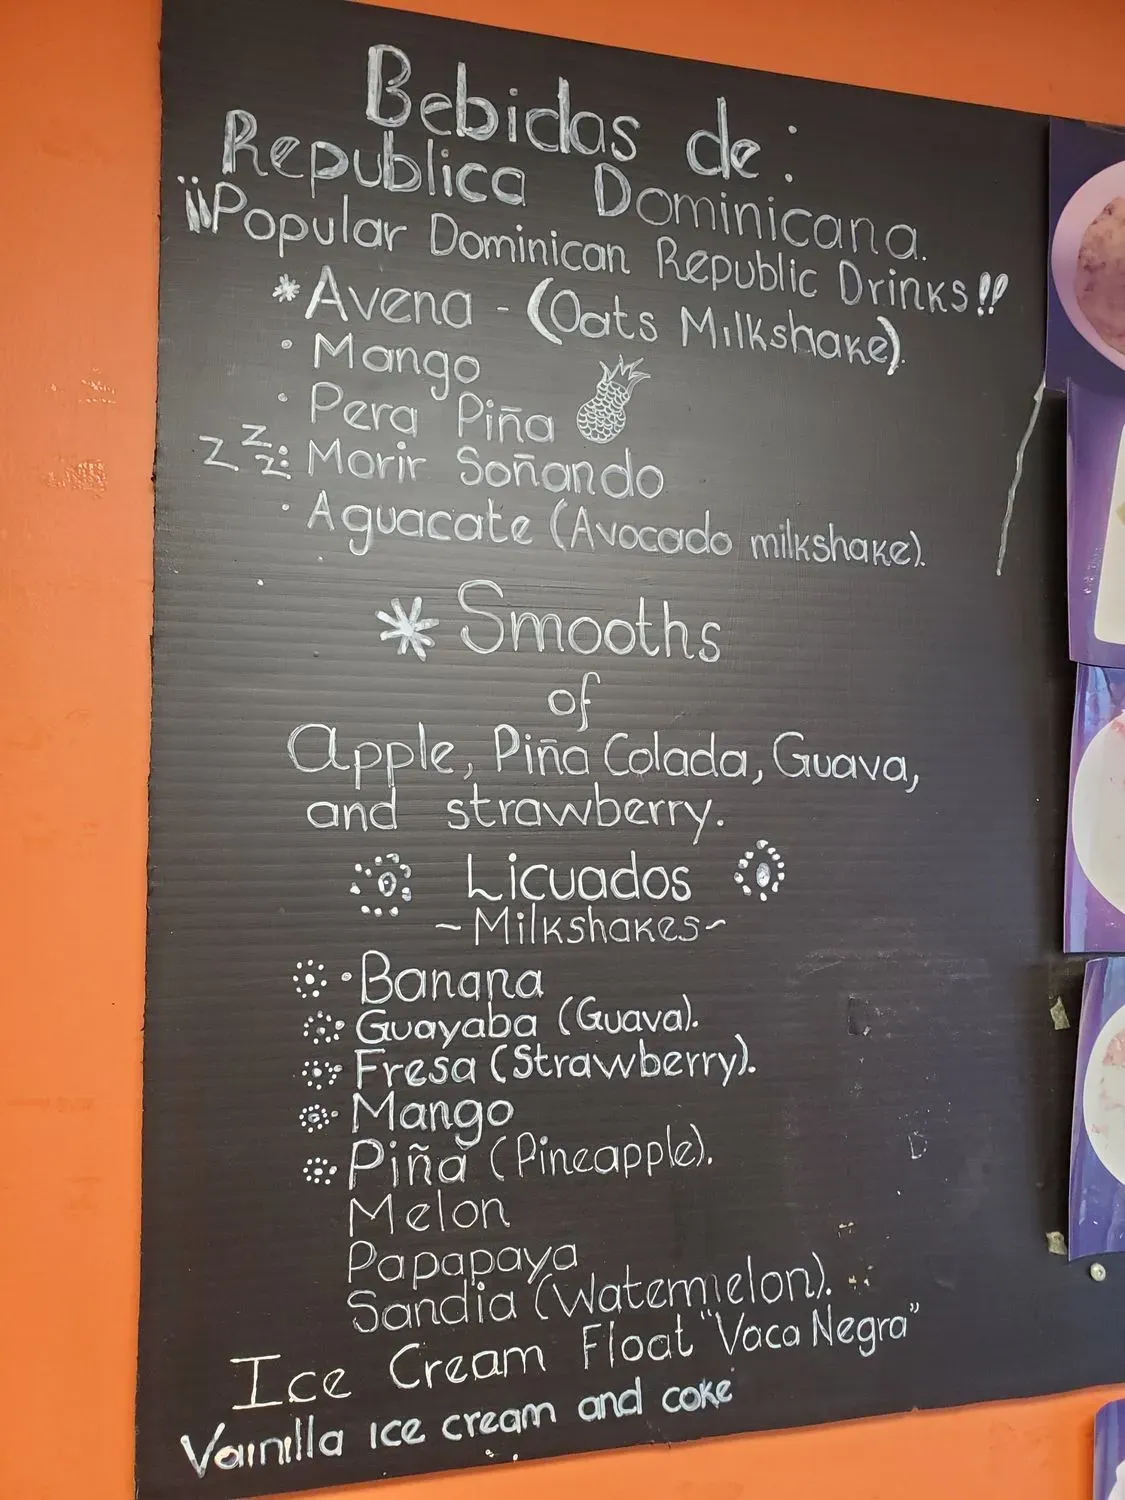 Bebidas de:
Republica Dominicana.
¡¡Popular Dominican Republic Drinks!!
*Avena - (Oats Milkshake).
· Mango
· Pera Piña
zzz: Morir Soñando
· Aguacate (Avocado milkshake).
* Smooths
of
apple, Piña Colada, Guava,
and strawberry.
Licuados
~Milkshakes~
· Banana
· Guayaba (Guava).
· Fresa (Strawberry).
· Mango
· Piña (Pineapple).
Melon
Papapaya
Sandia (Watermelon).
Ice Cream Float "Vaca Negra"
Vainilla ice cream and coke